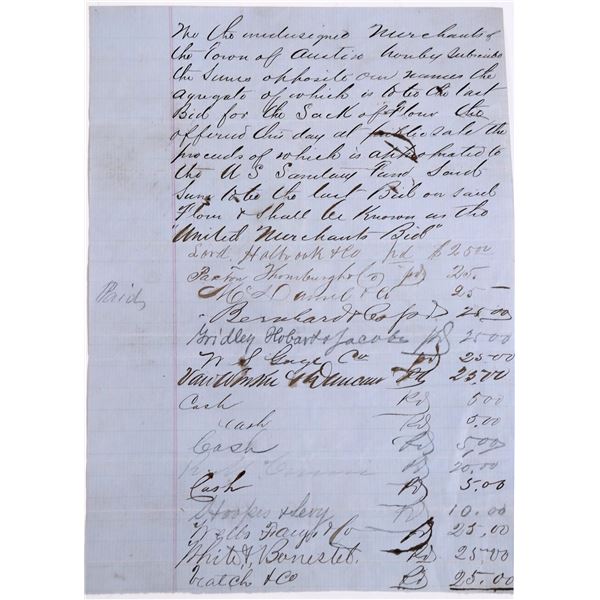 We the undersigned Merchants of
the Town of Austin hereby subscribe
the Sums opposite our names the
agregate of which is to be the last
Bid for the Sack of Flour the
offered this day at public sale the
proceeds of which is appropriated to
the U S Sanitary Fund Said
Sum to be the last Bid on said
Flour & shall be Known as the
"United Merchants Bid"
Lord, Holbrook & Co Pd $25.00
Paxton Thornburgh & Co pd 25
McDaniel & Co 25
Bernhard & Co pd 25.00
Paid
Gridley Hobart & Jacobs pd 25.00
W S Gage Co pd 25.00
Duncan Pd 25.00
Cash Pd 5.00
Cash Pd 5.00
Cash Pd 5.00
Pd 20.00
Cash Pd 5.00
Hoopes & Levy Pd 10.00
Wells Fargo & Co Pd 25.00
White & Bonestel Pd 25.00
& Co Pd 25.00